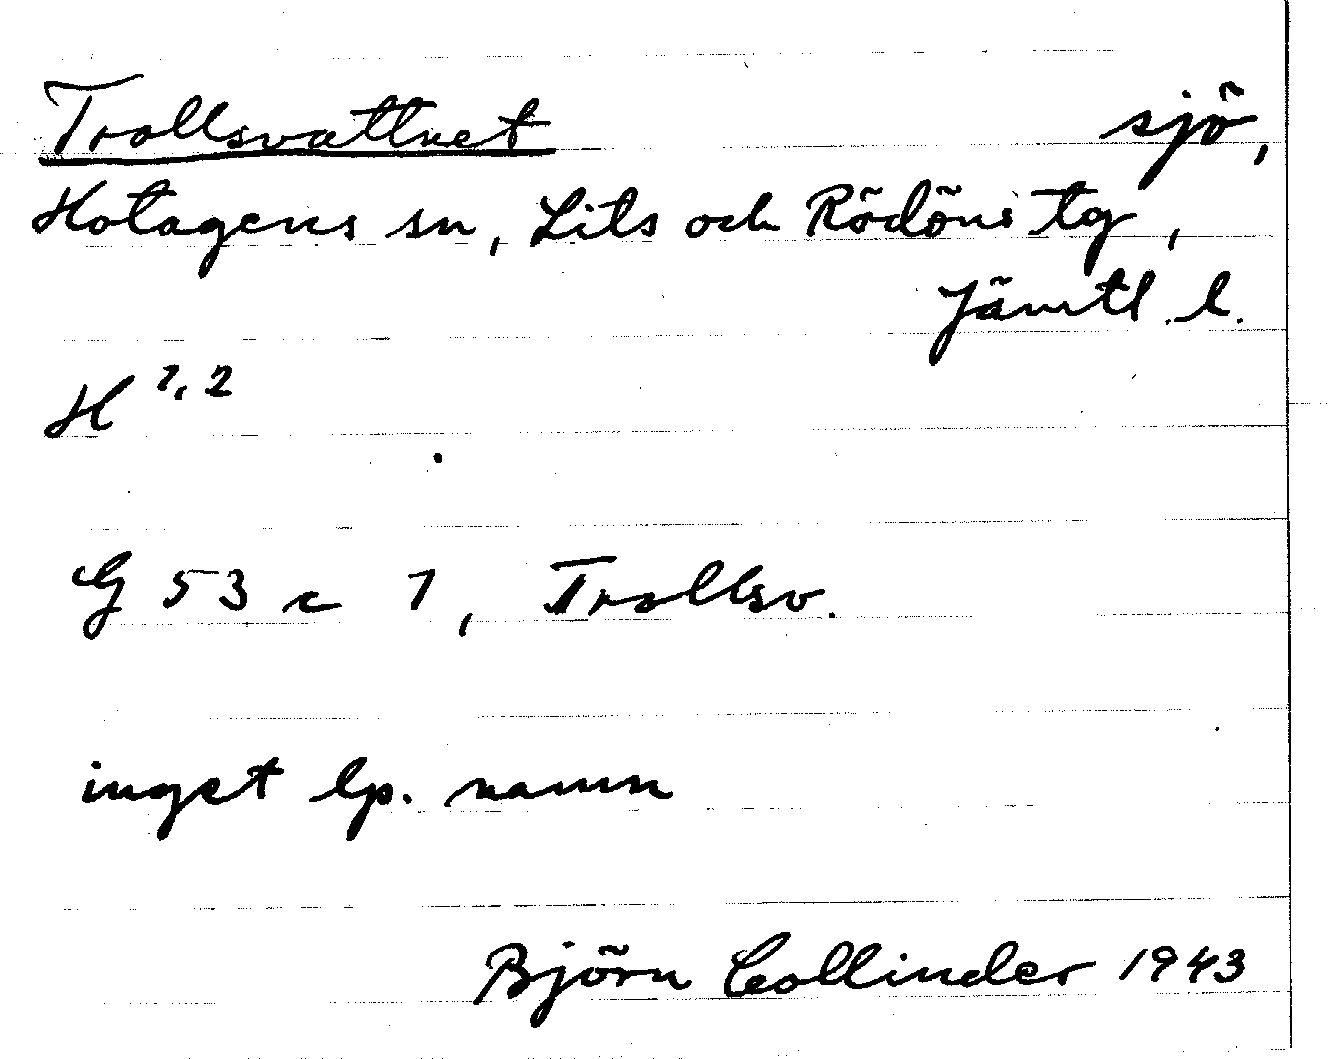 Trollsvattnet sjö,
Hotagens sn, Lits och Rödöns tg,
Jämtl. l.
H 1, 2
G 53 c 1, Trollsv.
inget lp. namn
Björn Collinder 1943